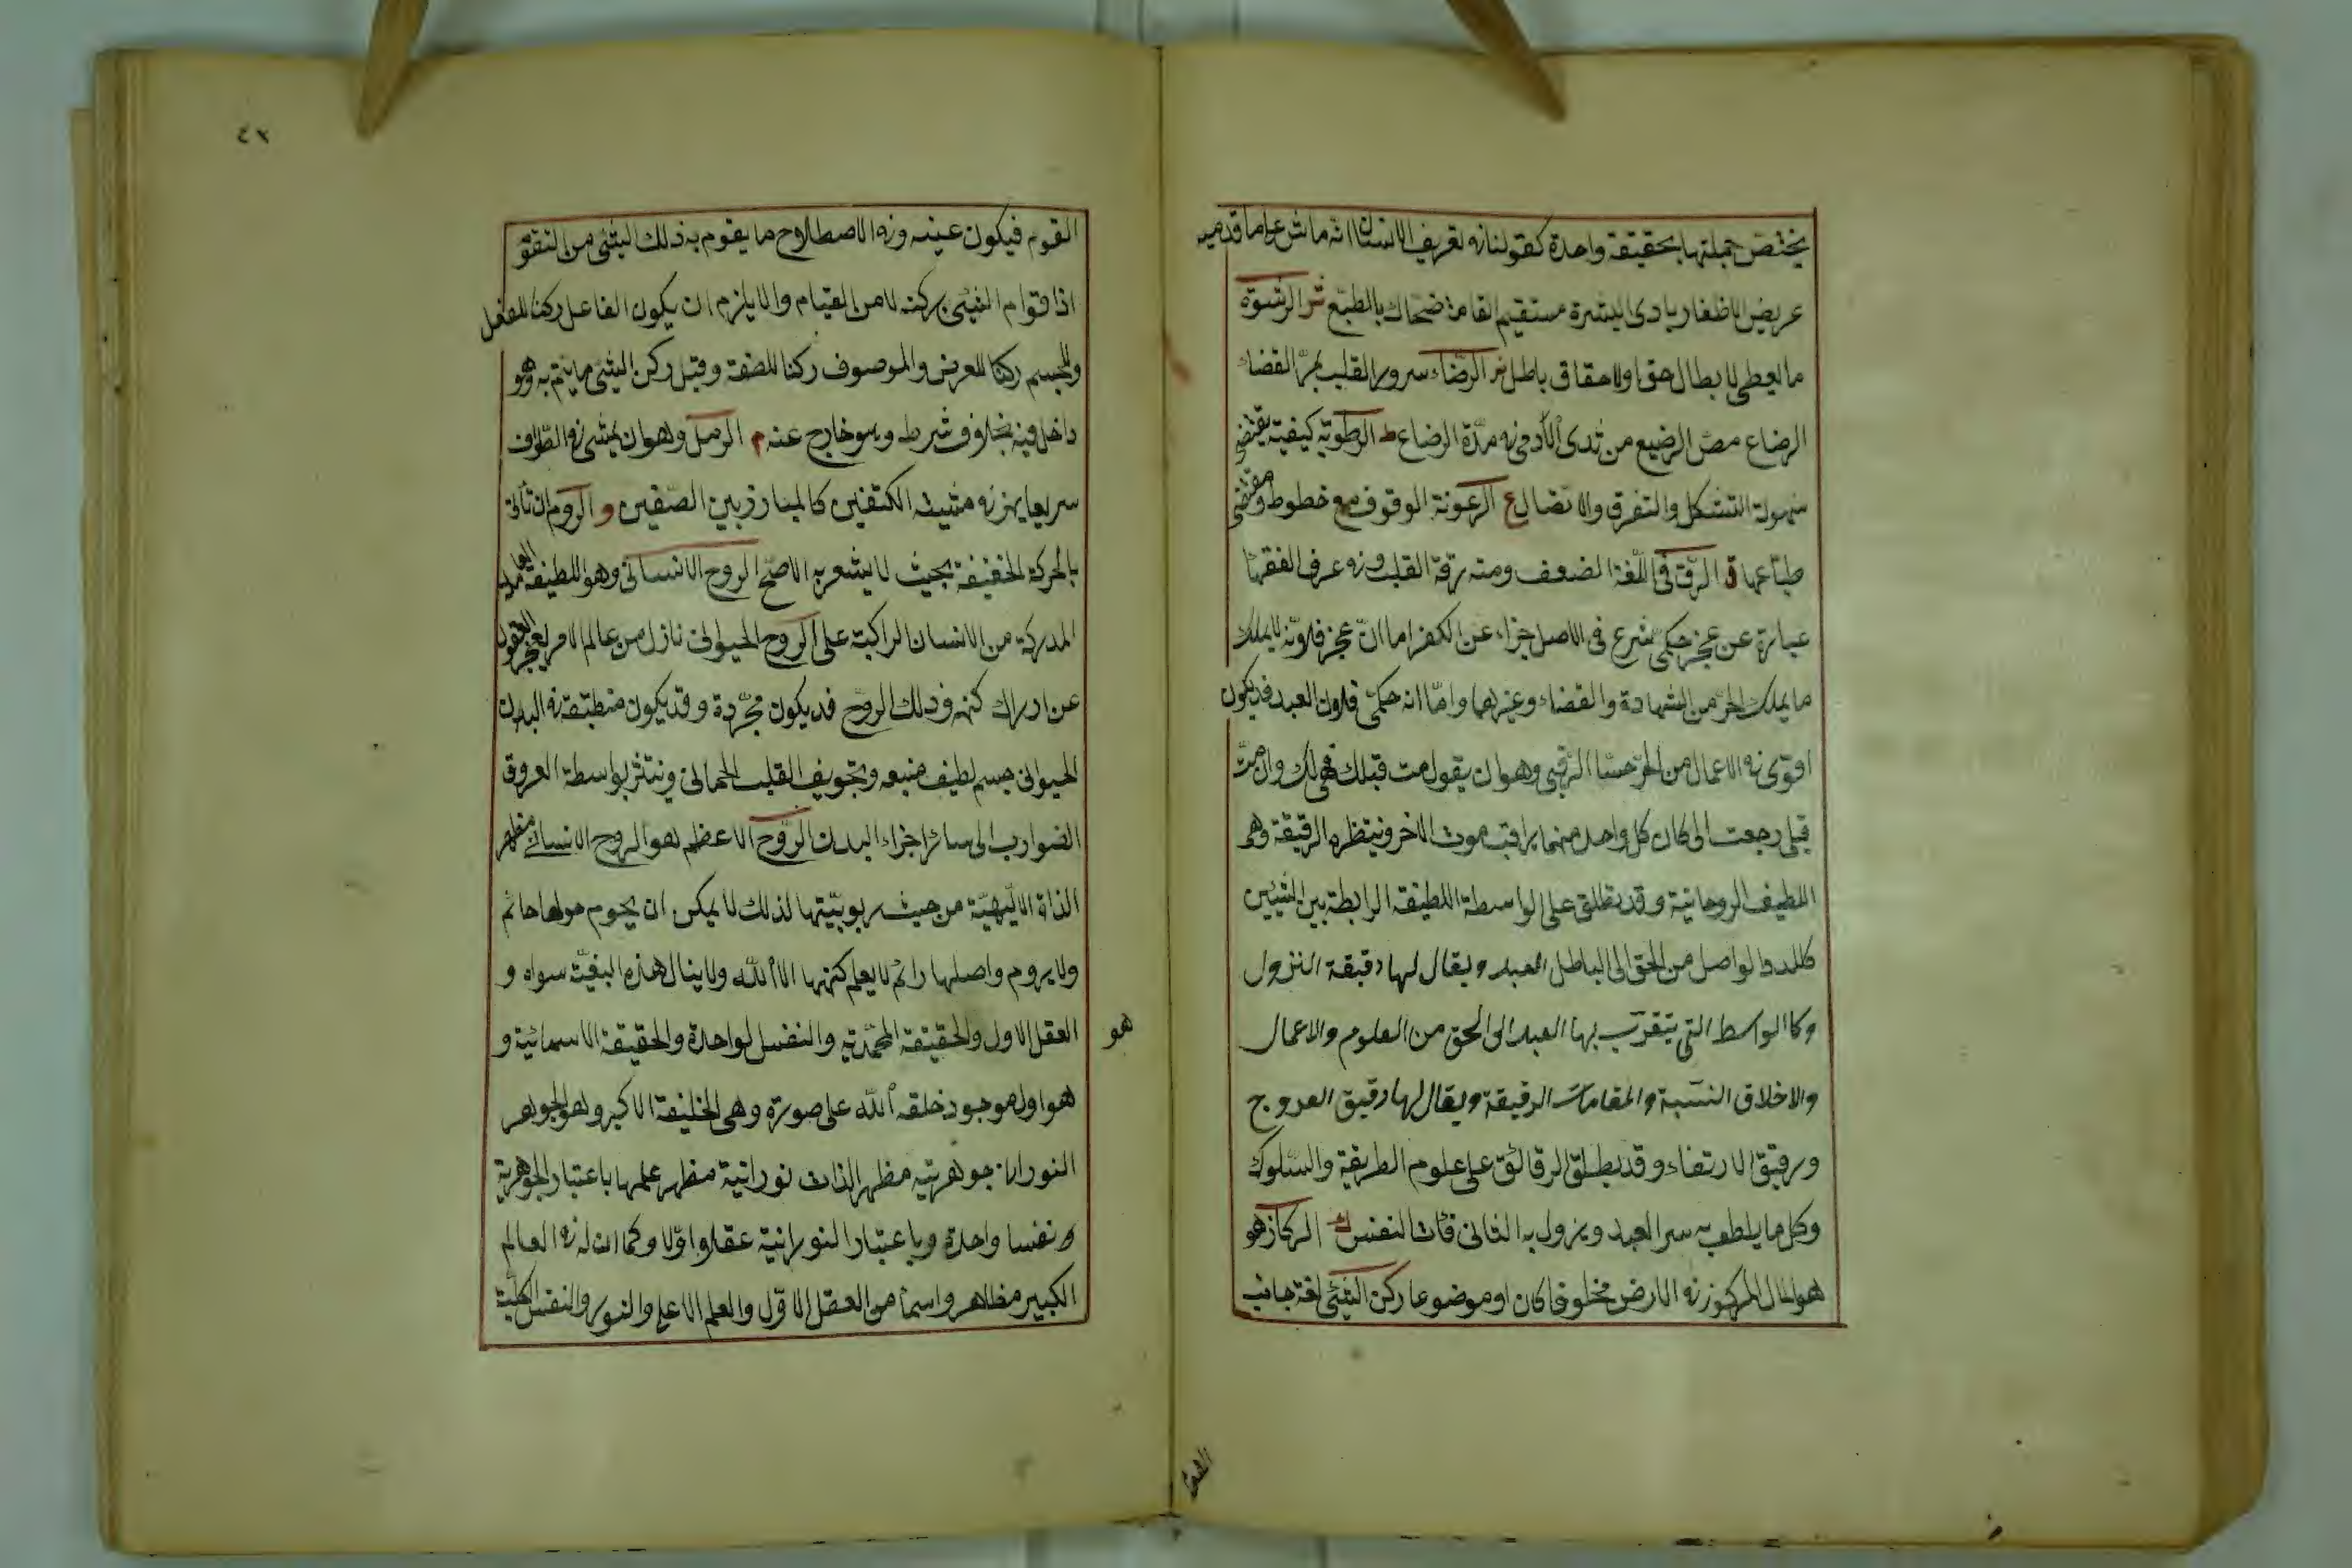 يختص جملتها بحقيقة واحدة كقولنا في تعريف الانسان انه ماش على ما قدميه
عريض الاظفار بادى البشرة مستقيم القامة ضحاك بالطبع ش الرشوة
ما يعطى لابطال حق او لاحقاق باطل ض الرضاء سرور القلب بمر القضاء
الرضاع مص الرضيع من ثدى الآدمى في مدة الرضاع ط الرطوبة كيفية يقتضى
سهولة التشكل والتفرق والاتصال ع الرعونة الوقوف مع خطوط ومقتضى
طباعها ق الرق في اللغة الضعف ومنه رقة القلب وفي عرف الفقها
عبارة عن عجز حكمى شرع في الاصل جزاء عن الكفر اما ان عجز فلانه لا يملك
ما يملك الحر من الشهادة والقضاء وغيرهما واما انه حكمى فلان العبد قد يكون
اقوى في الاعمال من الحر حسا الرقبى وهو ان يقول مت قبلك فهى لك وان مت
قبلى رجعت الى كان كل واحد منهما يراقب موت الاخر وينتظره الرقيقة وهى
اللطيف الروحانية وقد تطلق على الواسطة اللطيفة الرابطة بين الشيئين
كالمدد الواصل من الحق الى الباطل العبد ويقال لها دقيقة النزول
وكا الواسط التى يتقرب بها العبد الى الحق من العلوم والاعمال
والاخلاق النسبة والمقامات الرقيقة ويقال لها رقيق العروج
ورقيق الارتفاء وقد يطلق الرقائق على علوم الطريقة والسلوك
وكل ما يلطف به سر العبد ويزول به الثانى فات النفس ك الركاز هو
هو المال المركوز في الارض مخلوقا كان او موضوعا ركن الشئ لغة جانب
القو
٤٢
القوم فيكون عينه وفي الاصطلاح ما يقوم به ذلك الشئ من التقوم
اذ قوام الشئ بركنه لا من القيام والا يلزم ان يكون الفاعل ركنا للفعل
والجسم ركنا للعرض والموصوف ركنا للصفة وقيل ركن الشئ ما يتم به وهو
داخل فيه بخلاف شرط وهو خارج عنه م الرمل وهو ان يمشى في الطواف
سريعا يهز في مشيته الكتفين كالمبارز بين الصفين و الروم ان تأتى
بالحركة الخفيفة بحيث لا يشعر به الاصم الروح الانسانى وهو اللطيفة العالمة
المدركة من الانسان الراكبة على الروح الحيوانى نازل من عالم الامر يعجز العقول
عن ادراك كنهه وذلك الروح قد يكون مجردة وقد يكون منطبقة في البدن
الحيوانى جسم لطيف منبعه وتجويف القلب الجمانى وينتشر بواسطة العروق
الضوارب الى سائر اجزاء البدن الروح الاعظم هو الروح الانسانى مظهر
الذات الالهية من حيث ربوبيتها لذلك لا يمكن ان يحوم حولها حائم
ولا يروم واصلها رائم لا يعلم كنهها الا الله ولا ينال هذه البغية سواه و
هو
العقل الاول والحقيقة المحمدية والنفس الواحدة والحقيقة الاسمائية و
هو اول موجود خلقه الله على صورته وهى الخليفة الاكبر وهو الجوهر
النورانى جوهريته مظهر الذات نورانية مظهر علمها باعتبار الجوهرية
ونفسا واحدة وباعتبار النورانية عقلا واولا وكما ان له في العالم
الكبير مظاهر واسماء من العقل الاول والعلم الاعلى والنور والنفس الكلية